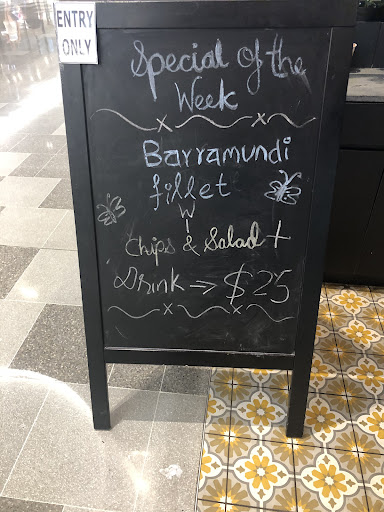 ENTRY
ONLY
Special of the
Week
Barramundi
fillet
W
Chips & Salad +
Drink → $25